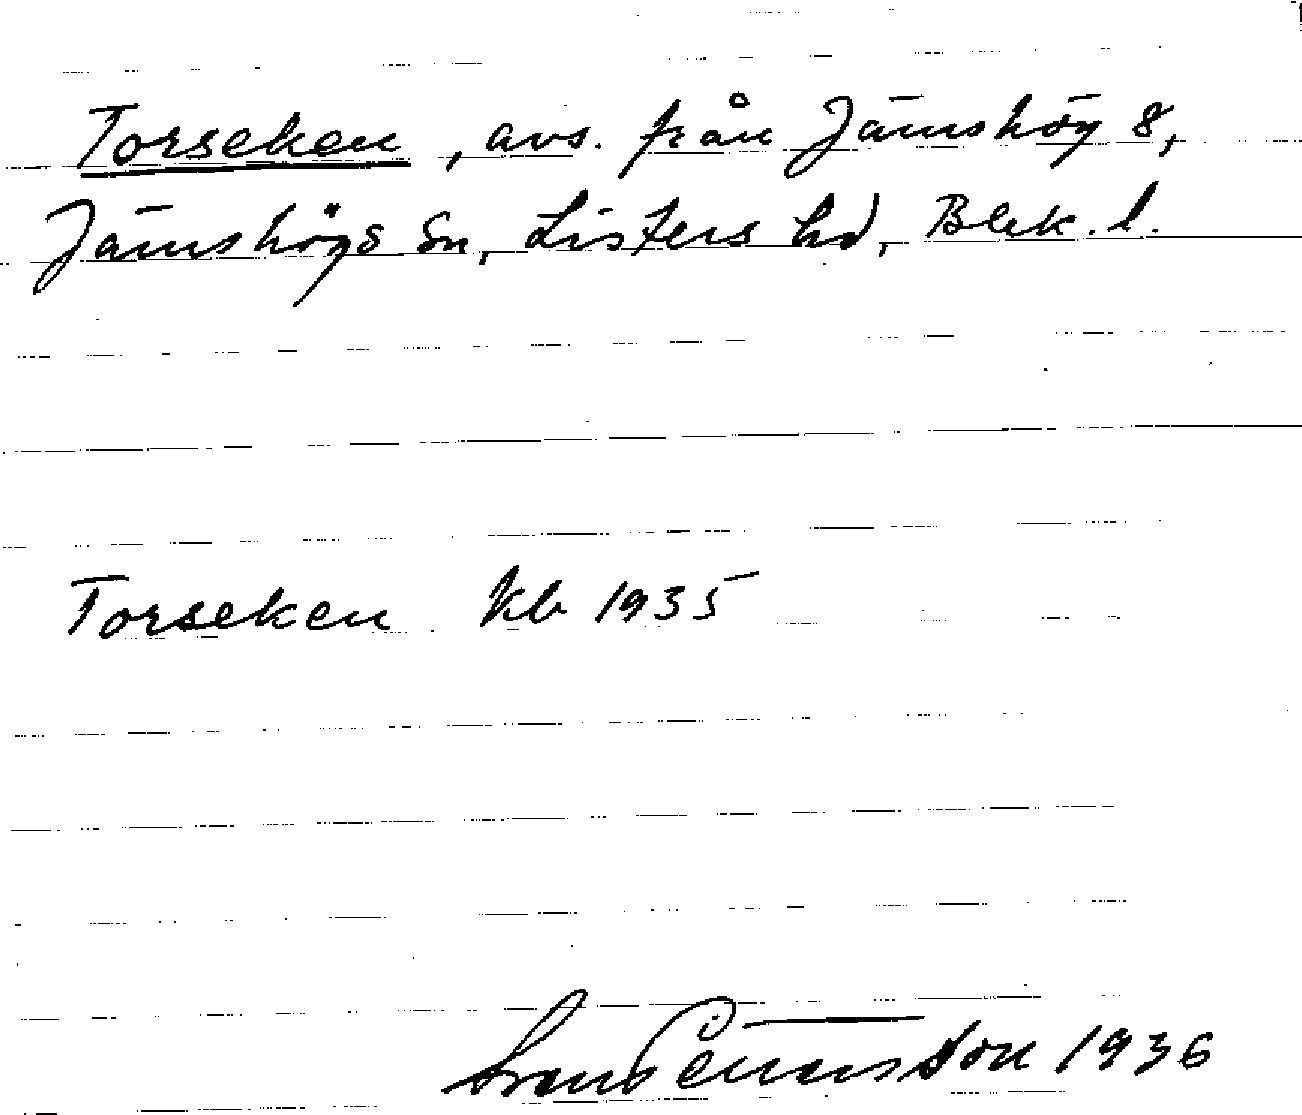 Torseken, avs. från Jämshög 8,
Jämshögs sn, Listers hd, Blek. l.
Torseken kb 1935
1936